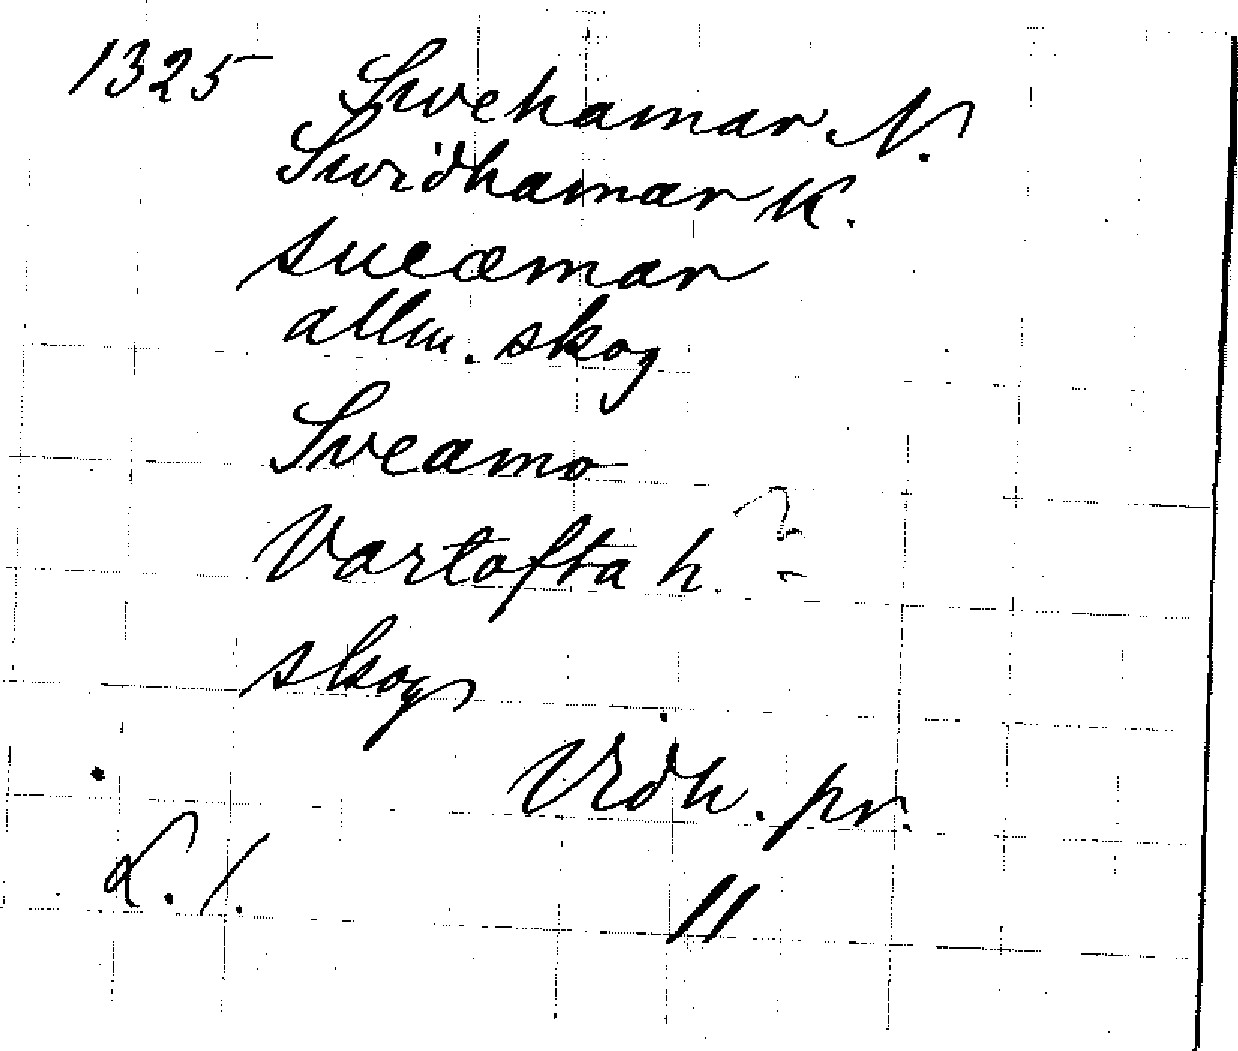 1325 Swehamar N.
Swidhamar K.
sueæmar
allm. skog
Sveamo
Vartofta h. ?
skog
Vidh. pr.
L. 1. 11